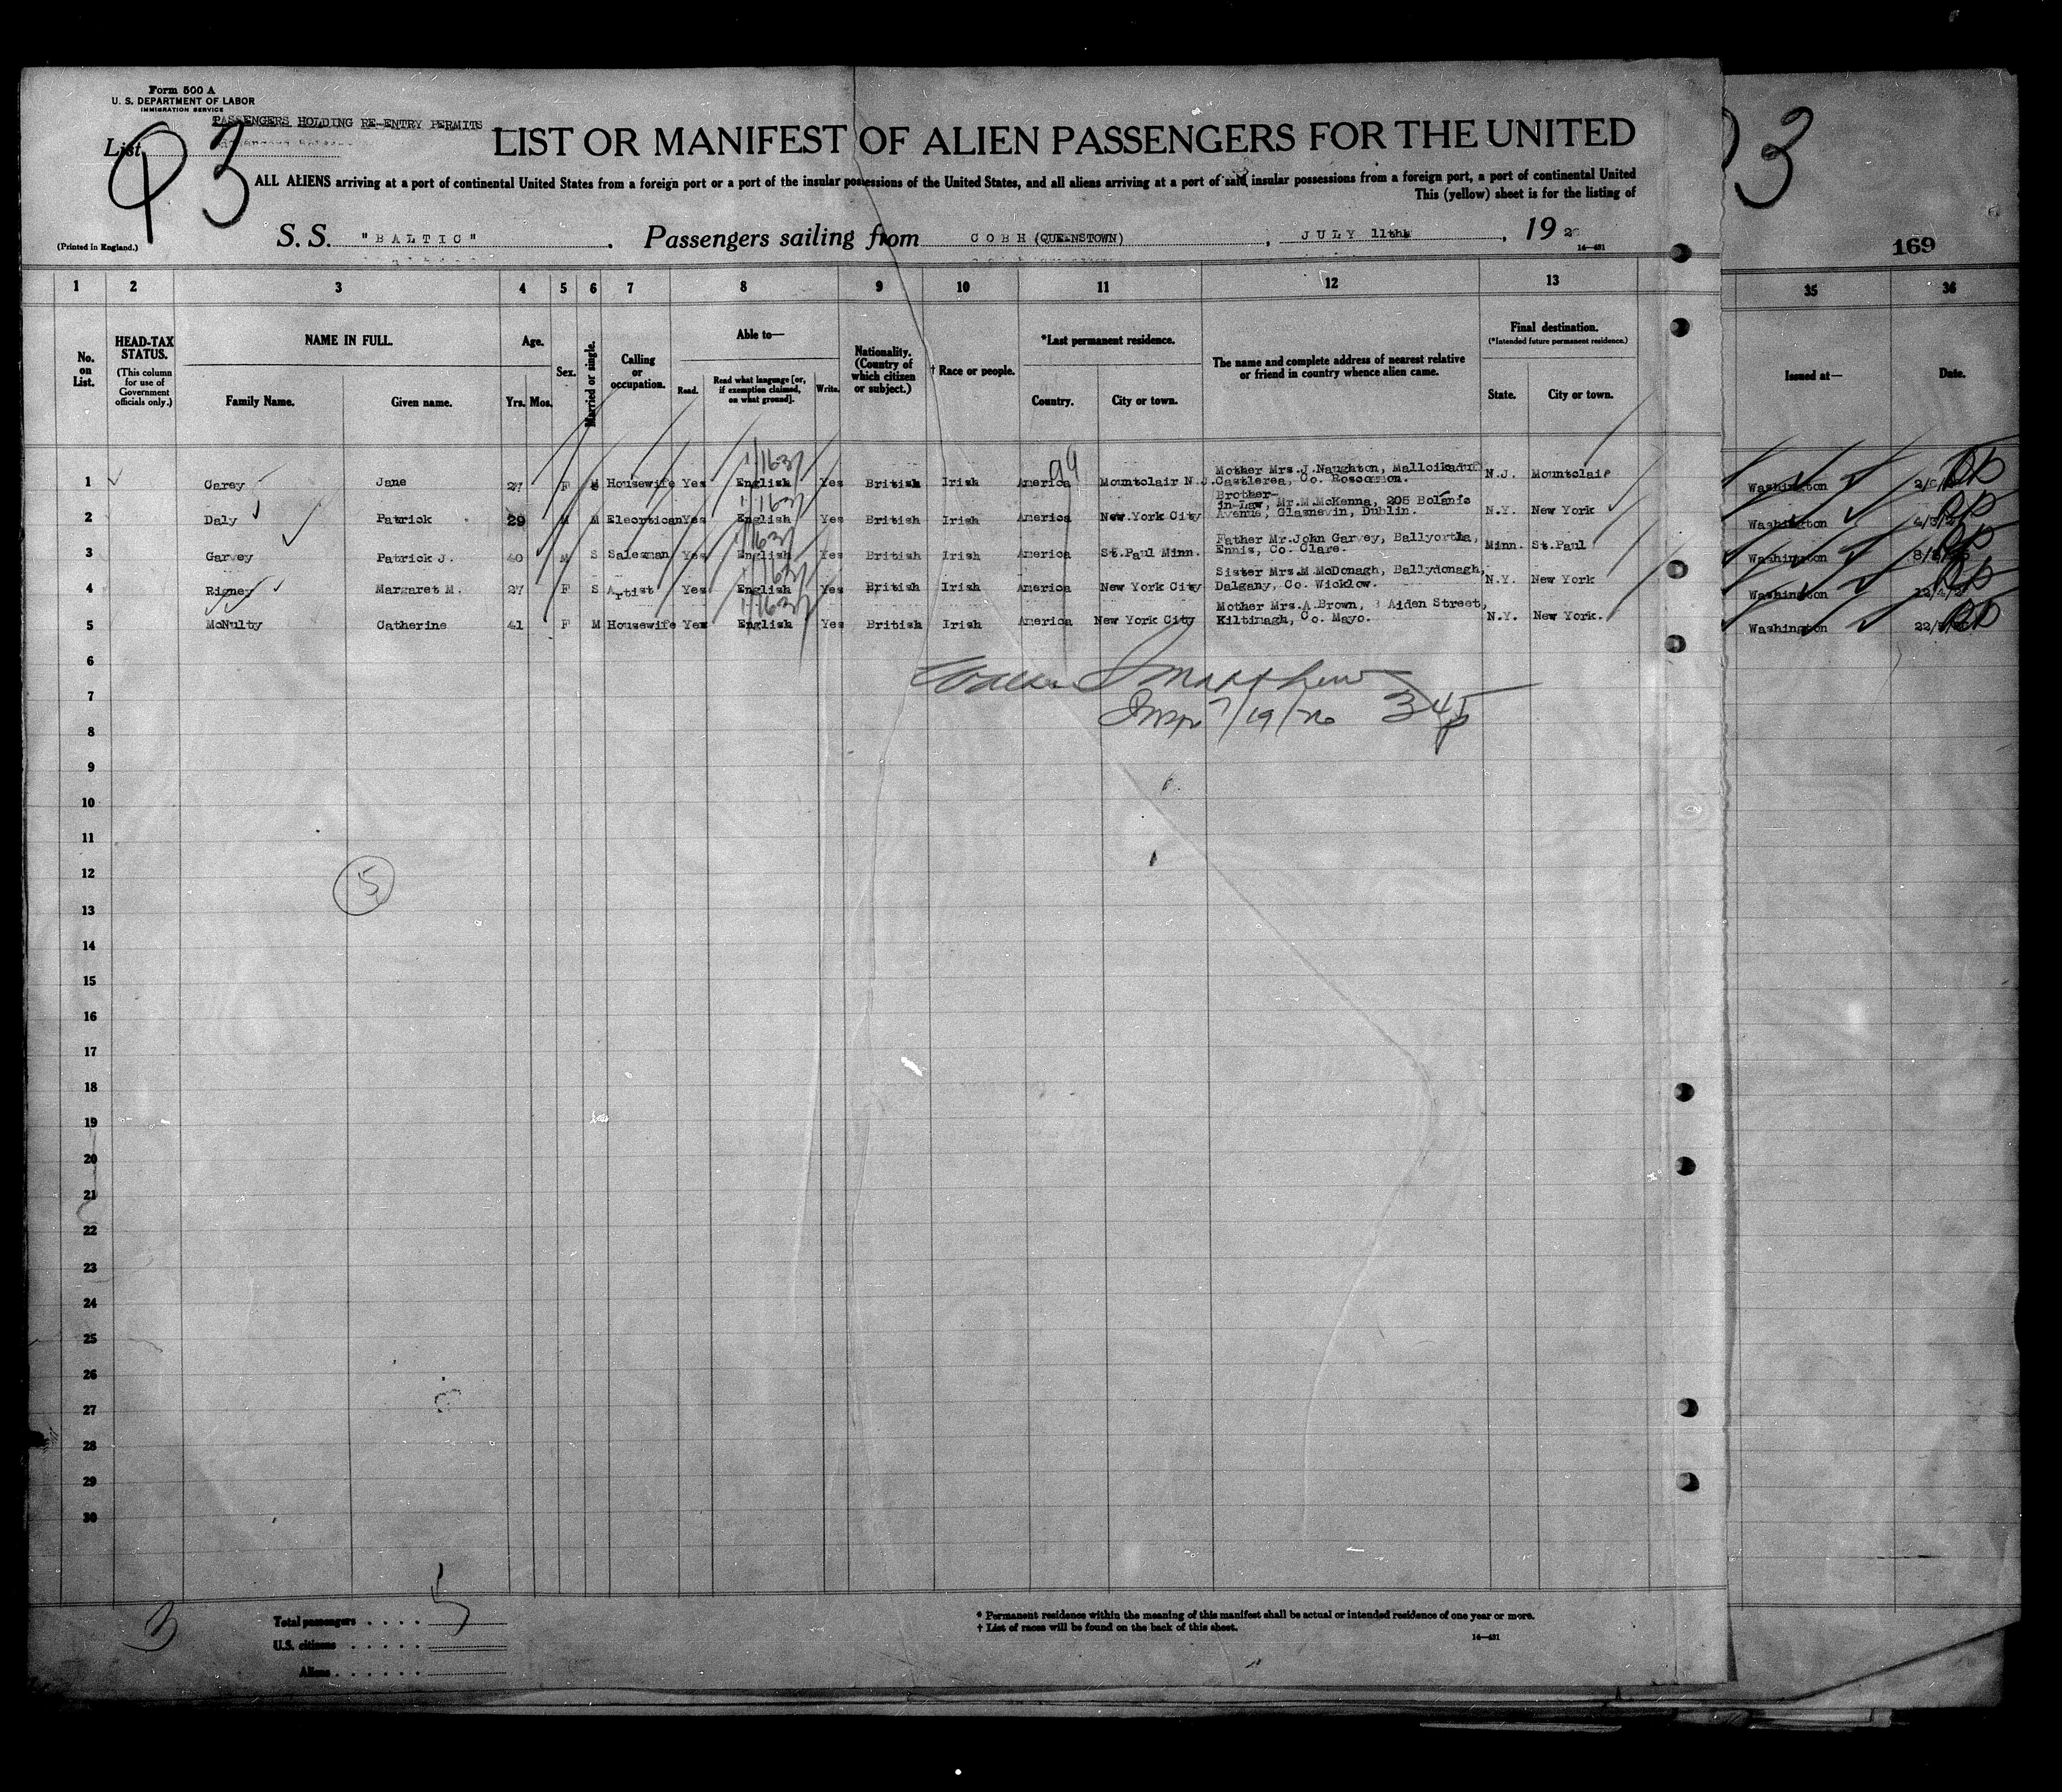 Form 500 A
U. S. DEPARTMENT OF LABOR
IMMIGRATION SERVICE
PASSENGERS HOLDING RE-ENTRY PERMITS
List
93
3
LIST OR MANIFEST OF ALIEN PASSENGERS FOR THE UNITED
ALL ALIENS arriving at a port of continental United States from a foreign port or a port of the insular possessions of the United States, and all aliens arriving at a port of said insular possessions from a foreign port, a port of continental United
This (yellow) sheet is for the listing of
(Printed in England.)
S. S. "BALTIC" . Passengers sailing from COBH (QUEENSTOWN) , JULY 11th , 19 26
14—431
169
1 2 3 4 5 6 7 8 9 10 11 12 13 35 36
No. on List.
HEAD-TAX STATUS.
(This column for use of Government officials only.)
NAME IN FULL.
Family Name. Given name.
Age.
Yrs. Mos.
Sex.
Married or single.
Calling or occupation.
Able to—
Read. Read what language [or, if exemption claimed, on what ground]. Write.
Nationality. (Country of which citizen or subject.)
† Race or people.
*Last permanent residence.
Country. City or town.
The name and complete address of nearest relative or friend in country whence alien came.
Final destination.
(*Intended future permanent residence.)
State. City or town.
Issued at—
Date.
99
1 Carey Jane 27 F M Housewife Yes English Yes British Irish America Mountclair N.J. Mother Mrs.J.Naughton, Castlerea, Co. Roscommon. N.J. Mountclair Washington
2 Daly Patrick 29 M M Elecrtican Yes English Yes British Irish America New.York City Brother-in-Law, Mr.M.McKenna, 205 Botanic Avenue, Glasnevin, Dublin. N.Y. New York Washington
3 Garvey Patrick J. 40 M S Salesman Yes English Yes British Irish America St.Paul Minn. Father Mr.John Garvey, Ballyortha, Ennis, Co. Clare. Minn. St.Paul Washington
4 Rigney Margaret M. 27 F S Artist Yes English Yes British Irish America New York City Sister Mrs.M.McDonagh, Ballydonagh, Dalgany, Co. Wicklow. N.Y. New York Washington
5 McNulty Catherine 41 F M Housewife Yes English Yes British Irish America New York City Mother Mrs.A.Brown, Aiden Street, Kiltimagh, Co. Mayo. N.Y. New York. Washington
6
7
Insp 7/19/26 345p
8
9
10
11
12
5
13
14
15
16
17
18
19
20
21
22
23
24
25
26
27
28
29
30
3
Total passengers . . . . 5
U.S. citizens . . . . .
Aliens . . . . . .
* Permanent residence within the meaning of this manifest shall be actual or intended residence of one year or more.
† List of races will be found on the back of this sheet.
14—431